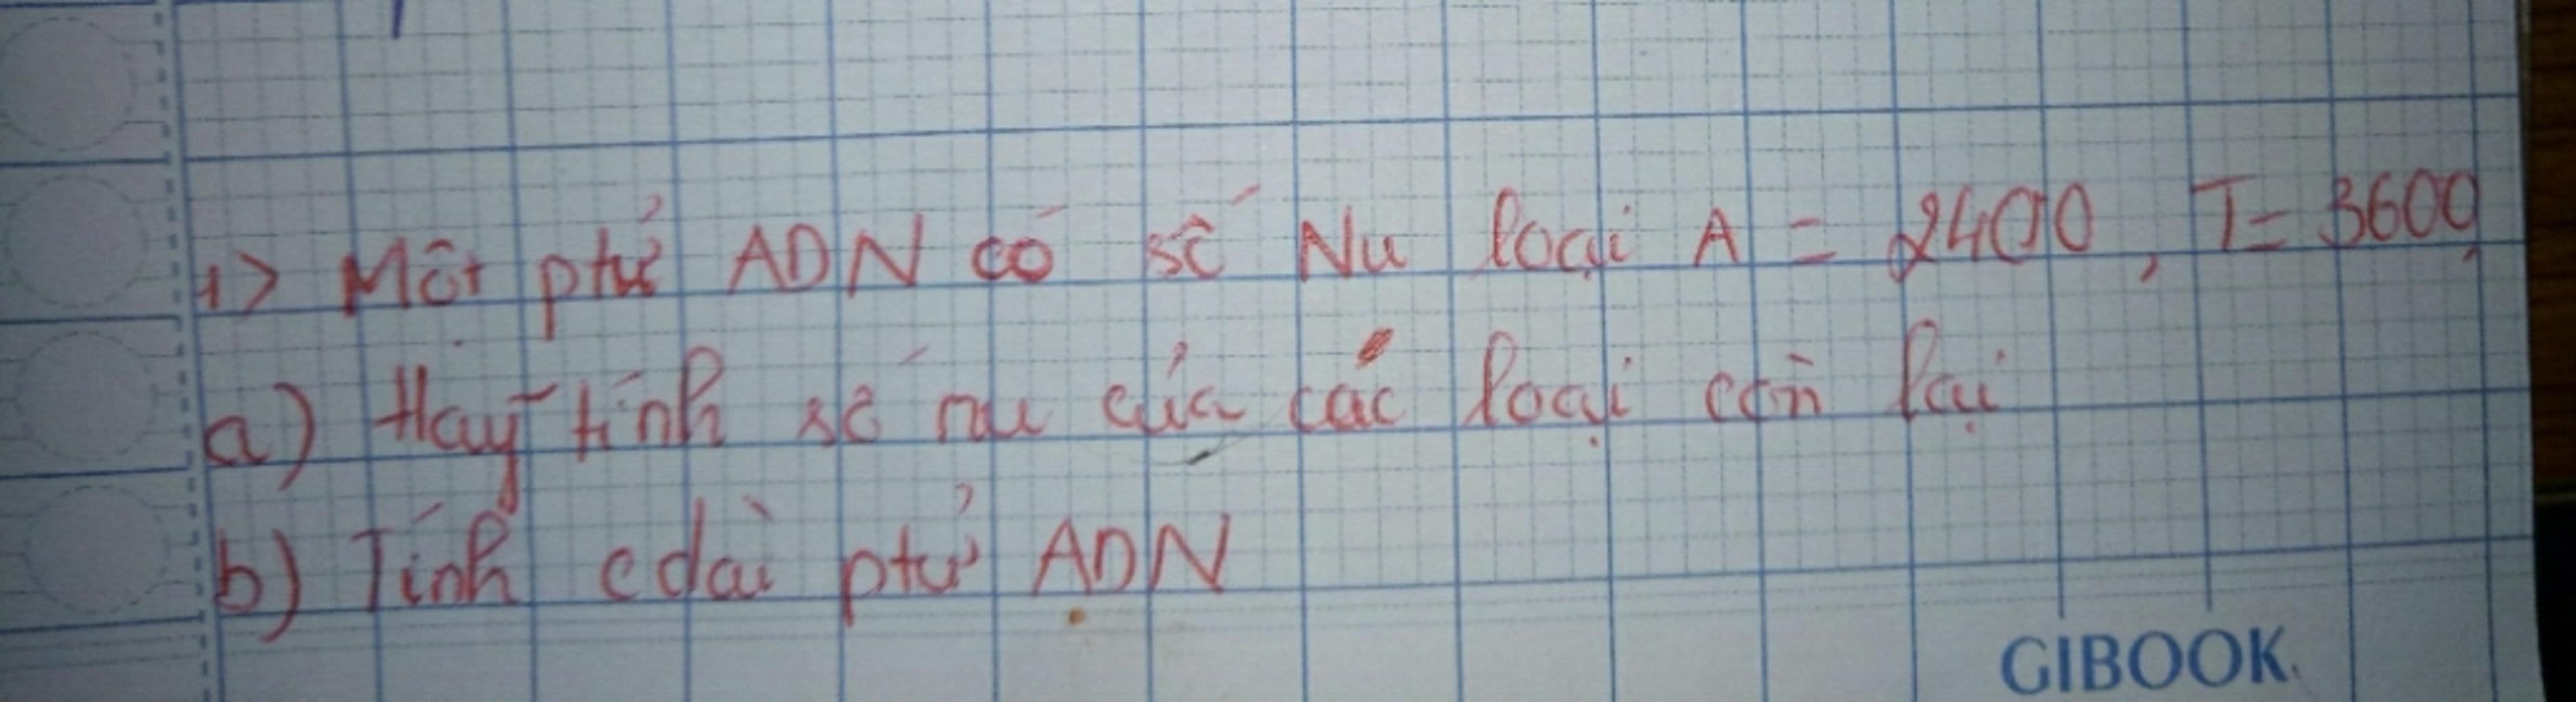 1> Một ptử ADN có số Nu loại A = 2400, T = 3600
a) Hãy tính số nu của các loại còn lại
b) Tính cdài ptử ADN
GIBOOK